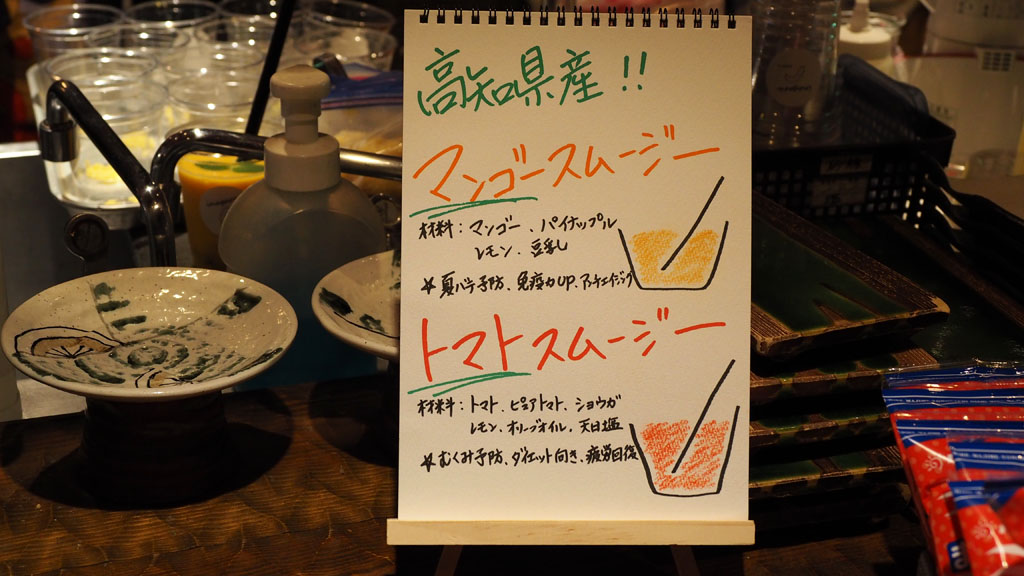 高知県産!!
マンゴースムージー
材料:マンゴー、パイナップル
レモン、豆乳
★夏バテ予防、免疫力UP、アンチエイジング
トマトスムージー
材料:トマト、ピュアトマト、ショウガ
レモン、オリーブオイル、天日塩
★むくみ予防、ダイエット向き、疲労回復